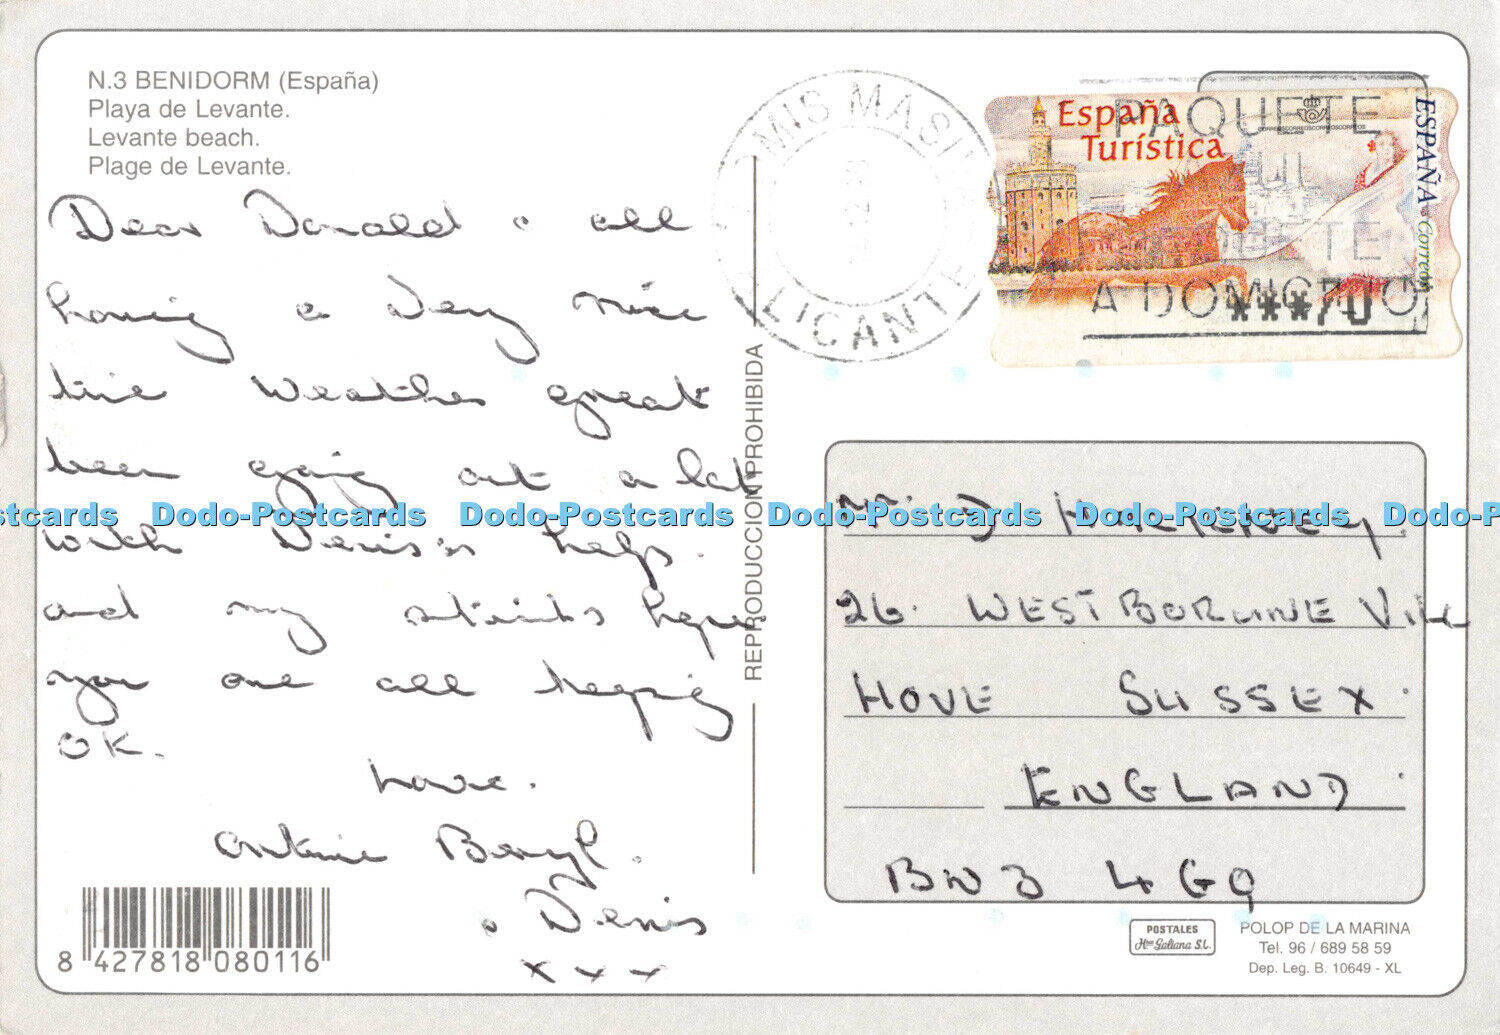 N.3 BENIDORM (España)
Playa de Levante.
Levante beach.
Plage de Levante.
Dear Donald & all
having a very nice
time weather great
been going out a lot
with Denis's help.
and my sticks hope
you are all keeping
OK.
love.
Auntie Beryl.
& Denis
x x x
8 427818 080116
REPRODUCCION PROHIBIDA
ALICANTE
España
Turística
ESPAÑA
Correos
PAQUETE
A DOMICILIO
***70
Mr. D HARKNEY.
26. WESTBOURNE VILL
HOVE SUSSEX.
ENGLAND.
BN3 4GQ
POSTALES
Hnos Galiana S.L.
POLOP DE LA MARINA
Tel. 96 / 689 58 59
Dep. Leg. B. 10649 - XL
Dodo-Postcards Dodo-Postcards Dodo-Postcards Dodo-Postcards